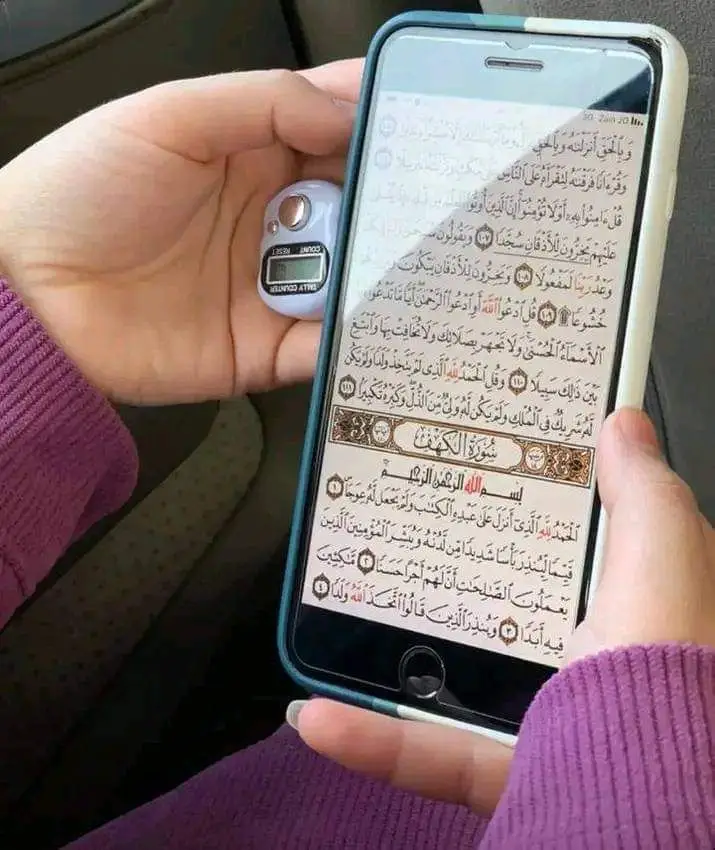 Zain
وَبِٱلْحَقِّ أَنزَلْنَٰهُ وَبِٱلْحَقِّ
وَقُرْءَانًا فَرَقْنَٰهُ لِتَقْرَأَهُۥ عَلَى ٱلنَّاسِ
قُلْ ءَامِنُوا۟ بِهِۦٓ أَوْ لَا تُؤْمِنُوٓا۟ إِنَّ ٱلَّذِينَ أُوتُوا۟
عَلَيْهِمْ يَخِرُّونَ لِلْأَذْقَانِ سُجَّدًا ١٠٧ وَيَقُولُونَ
وَعْدُ رَبِّنَا لَمَفْعُولًا ١٠٨ وَيَخِرُّونَ لِلْأَذْقَانِ يَبْكُونَ
خُشُوعًا ۩ ١٠٩ قُلِ ٱدْعُوا۟ ٱللَّهَ أَوِ ٱدْعُوا۟ ٱلرَّحْمَٰنَ أَيًّا مَّا تَدْعُوا۟
ٱلْأَسْمَآءُ ٱلْحُسْنَىٰ وَلَا تَجْهَرْ بِصَلَاتِكَ وَلَا تُخَافِتْ بِهَا وَٱبْتَغِ
بَيْنَ ذَٰلِكَ سَبِيلًا ١١٠ وَقُلِ ٱلْحَمْدُ لِلَّهِ ٱلَّذِى لَمْ يَتَّخِذْ وَلَدًا وَلَمْ يَكُن
لَّهُۥ شَرِيكٌ فِى ٱلْمُلْكِ وَلَمْ يَكُن لَّهُۥ وَلِىٌّ مِّنَ ٱلذُّلِّ وَكَبِّرْهُ تَكْبِيرًۢا ١١١
سُورَةُ الكَهْفِ
بِسْمِ ٱللَّهِ ٱلرَّحْمَٰنِ ٱلرَّحِيمِ
ٱلْحَمْدُ لِلَّهِ ٱلَّذِىٓ أَنزَلَ عَلَىٰ عَبْدِهِ ٱلْكِتَٰبَ وَلَمْ يَجْعَل لَّهُۥ عِوَجَا ١
قَيِّمًا لِّيُنذِرَ بَأْسًا شَدِيدًا مِّن لَّدُنْهُ وَيُبَشِّرَ ٱلْمُؤْمِنِينَ ٱلَّذِينَ
يَعْمَلُونَ ٱلصَّٰلِحَٰتِ أَنَّ لَهُمْ أَجْرًا حَسَنًا ٢ مَّٰكِثِينَ
فِيهِ أَبَدًا ٣ وَيُنذِرَ ٱلَّذِينَ قَالُوا۟ ٱتَّخَذَ ٱللَّهُ وَلَدًا ٤
TALLY COUNTER
COUNT RESET